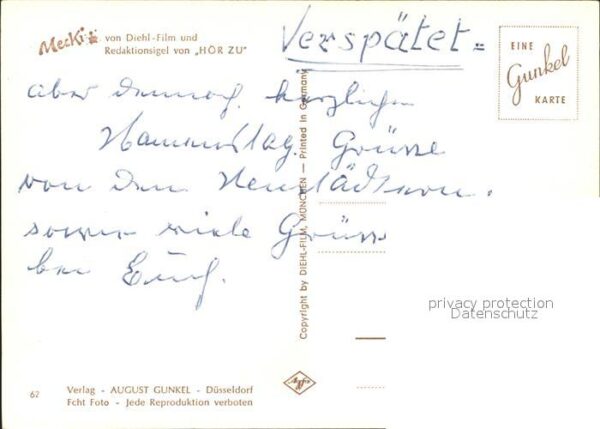 Mecki von Diehl-Film und
Redaktionsigel von „HÖR ZU"
Verspätet =
EINE
Gunkel
KARTE
aber dennoch herzlichen
Namenstag. Grüsse
von den
sowie viele Grüsse
bei Euch.
Copyright by DIEHL-FILM, MÜNCHEN — Printed in Germany
privacy protection
Datenschutz
Agfa
62
Verlag - AUGUST GUNKEL - Düsseldorf
Echt Foto - Jede Reproduktion verboten